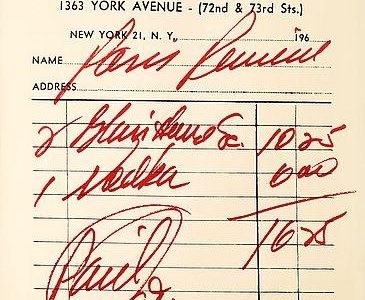 1363 YORK AVENUE - (72nd & 73rd Sts.)
NEW YORK 21, N. Y., 196
NAME Paris Review
ADDRESS
2 Sc. 10 25
1 Vodka 6 00
16 25
Paid